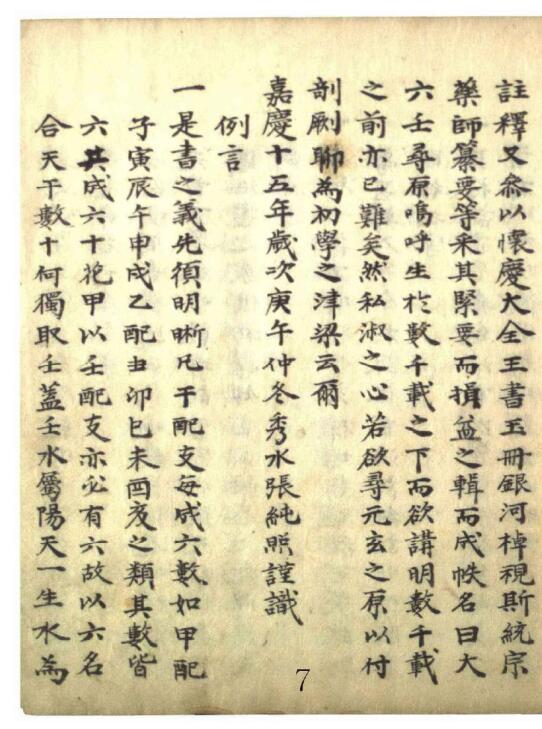 註釋又叅以懷慶大全王書玉册銀河棹視斯統宗
藥師纂要等采其緊要而損益之輯而成帙名曰大
六壬尋原嗚呼生於數千載之下而欲講明數千載
之前亦已難矣然私淑之心若欲尋元玄之原以付
剖劂聊為初學之津梁云爾
嘉慶十五年歲次庚午仲冬秀水張純照謹識
例言
一是書之義先須明晰凡干配支每成六數如甲配
子寅辰午申戌乙配丑卯巳未酉亥之類其數皆
六共成六十花甲以壬配支亦必有六故以六名
合天干數十何獨取壬蓋壬水屬陽天一生水為
7